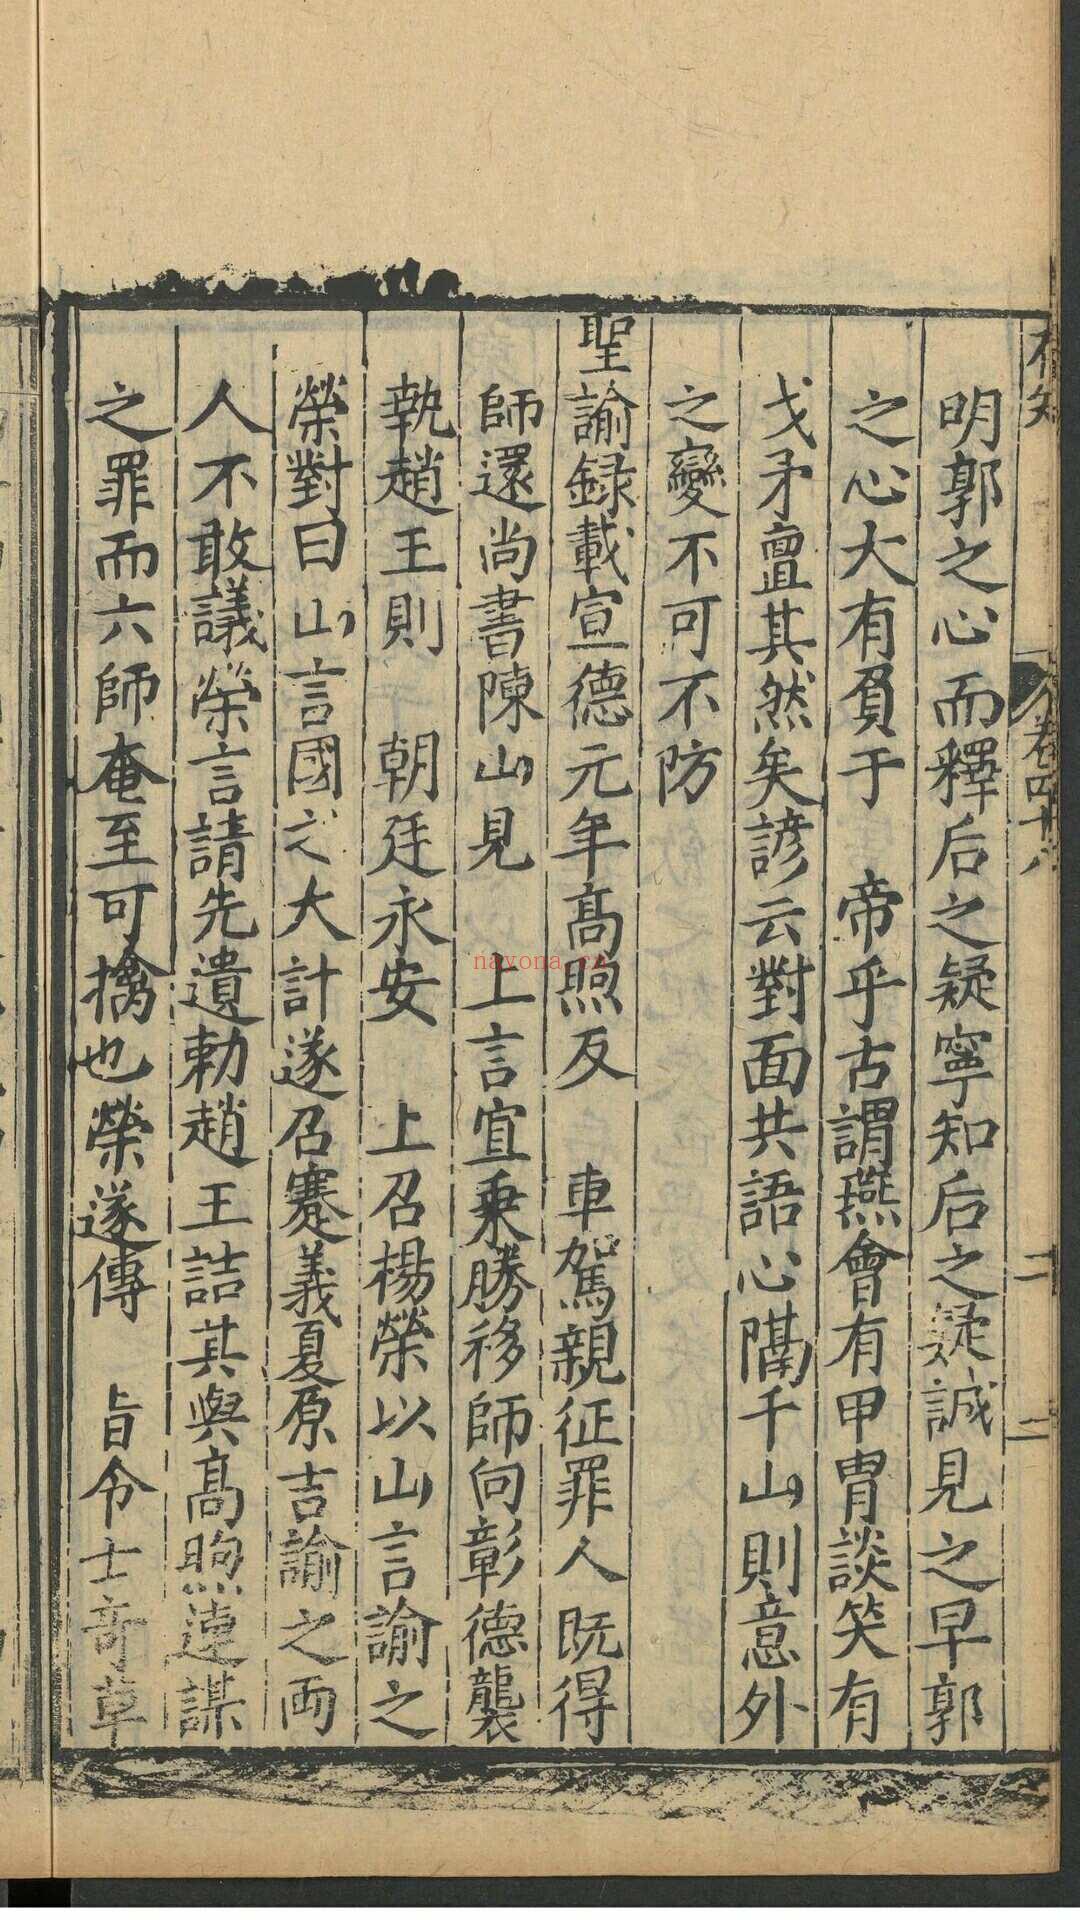 卷四十八
二
明郭之心而釋后之疑寧知后之疑誠見之早郭
之心大有負于　帝乎古謂燕會有甲冑談笑有
戈矛亶其然矣諺云對面共語心隔千山則意外
之變不可不防
聖諭録載宣德元年高煦反　車駕親征罪人既得
師還尚書陳山見　上言宜乗勝移師向彰德襲
執趙王則　朝廷永安　上召楊榮以山言諭之
榮對曰山言國之大計遂召蹇義夏原吉諭之兩
人不敢議榮言請先遣勅趙王詰其與高煦連謀
之罪而六師奄至可擒也榮遂傳　旨令士竒草
nayona.cn